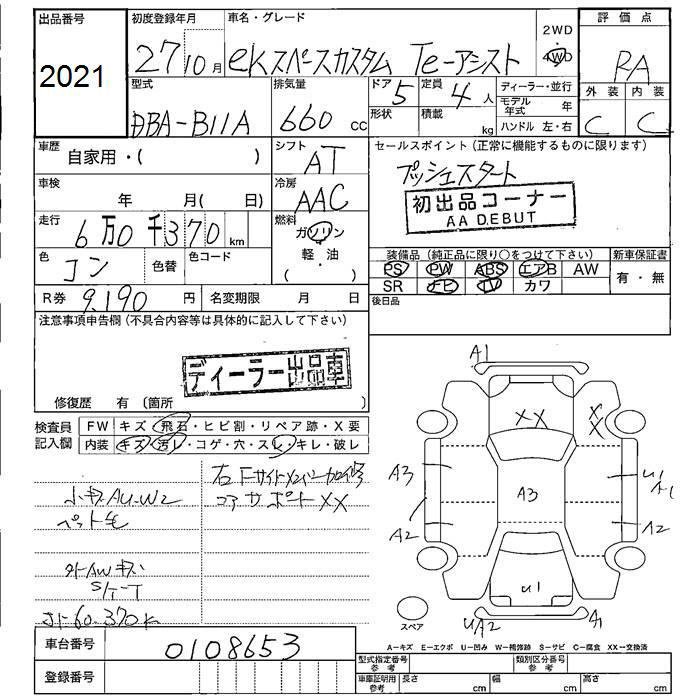 出品番号
2021
初度登録年月
27 10月
車名・グレード
ekスペースカスタム Te-アシスト
2WD
・
4WD
評価点
RA
外装 内装
C C
型式
DBA-B11A
排気量
660 cc
ドア 5
形状
定員 4人
積載 kg
ディーラー・並行
モデル年式 年
ハンドル 左・右
車歴
自家用・( )
シフト
AT
車検
年 月( 日)
冷房
AAC
走行
6万0千370 km
燃料
ガソリン
・
軽・油
( )
色
コン
色替
色コード
R券 9,190円
名変期限 月 日
セールスポイント(正常に機能するものに限ります)
プッシュスタート
初出品コーナー
AA DEBUT
装備品(純正品に限り○をつけて下さい)
PS PW ABS エアB AW
SR ナビ TV カワ
新車保証書
有・無
後日品
注意事項申告欄(不具合内容等は具体的に記入して下さい)
ディーラー出品車
修復歴 有(箇所 )
検査員
記入欄
FW キズ・飛石・ヒビ割・リペア跡・X要
内装 キズ・汚レ・コゲ・穴・スレ・キレ・破レ
小キズAU.W2
ペット毛
外AWキズ
S/T-T
メーター60.370k
右Fサイドメンバー加修
コアサポートXX
A1
XX
X
X
A3
A3
U1
A1
A2
A2
U1
UA2
A1
スペア
A=キズ E=エクボ U=凹み W=補修跡 S=サビ C=腐食 XX=交換済
車台番号
0108653
登録番号
型式指定番号
参考
類別区分番号
参考
車庫証明用
参考
長さ cm
幅 cm
高さ cm